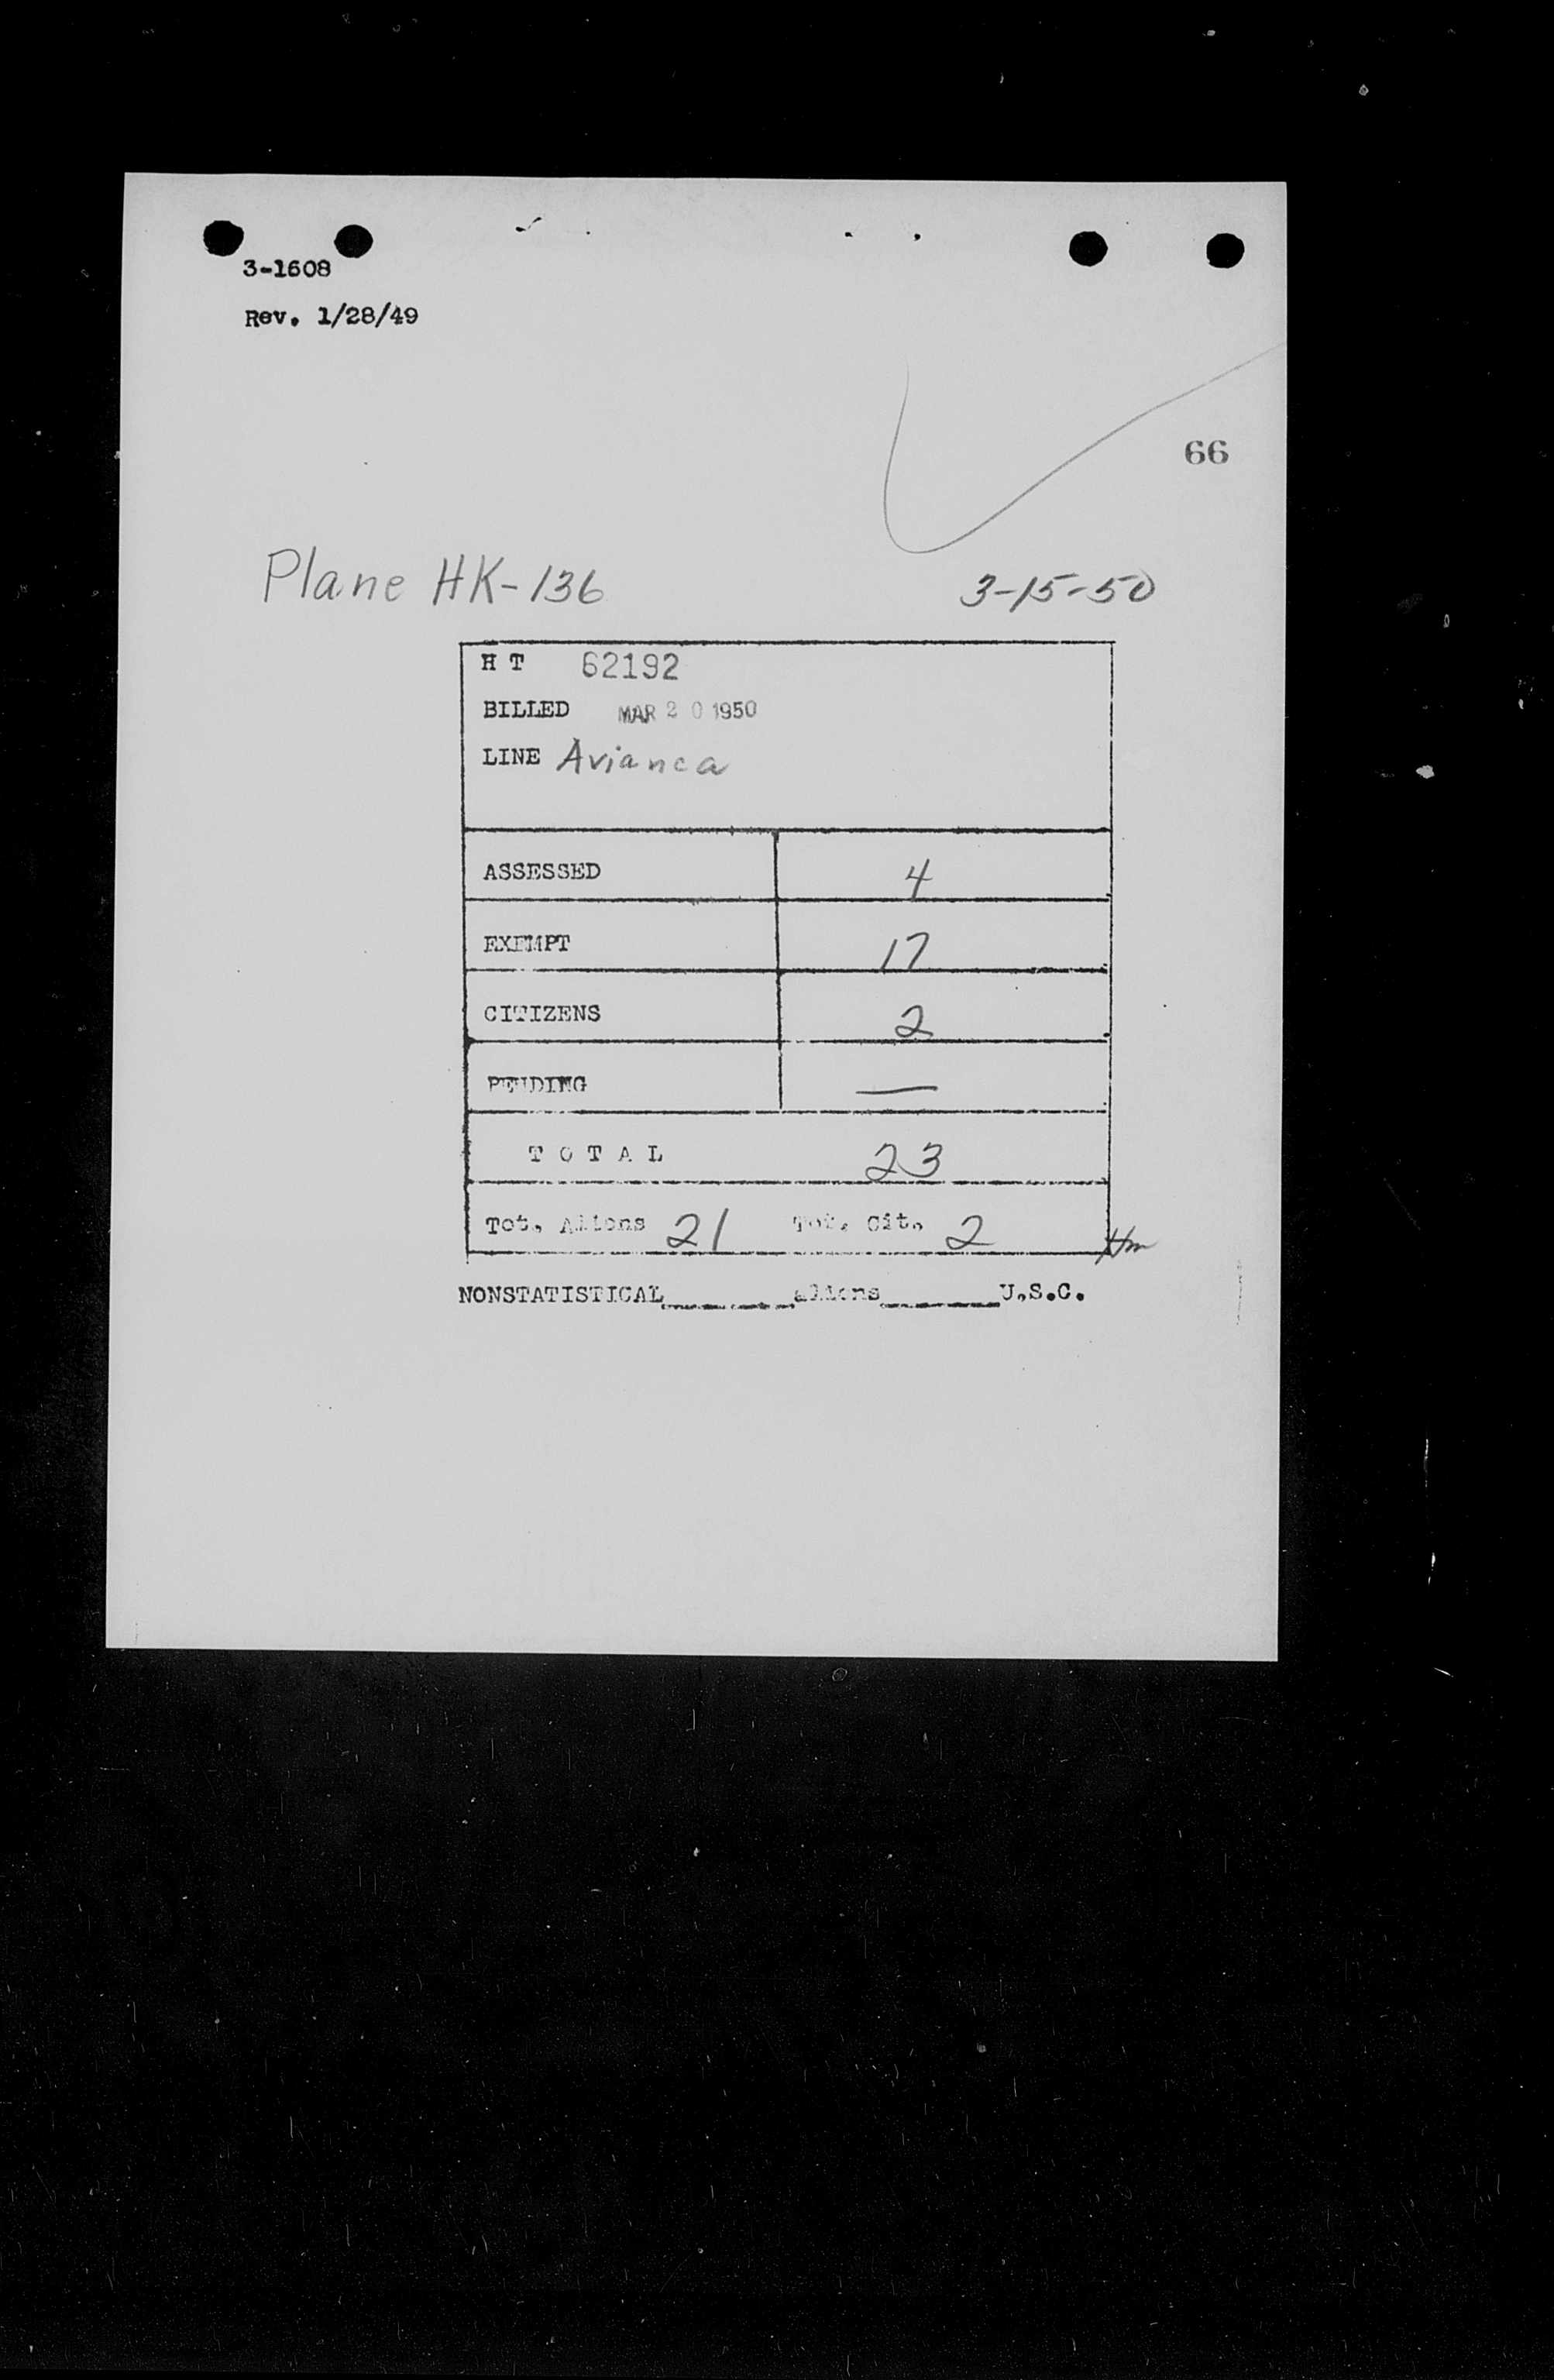 3-1608
Rev. 1/28/49
66
Plane HK-136 3-15-50
HT 62192
BILLED MAR 20 1950
LINE Avianca
ASSESSED 4
EXEMPT 17
CITIZENS 2
PENDING —
TOTAL 23
Tot. Aliens 21 Tot. Cit. 2
NONSTATISTICAL______aliens______U.S.C.